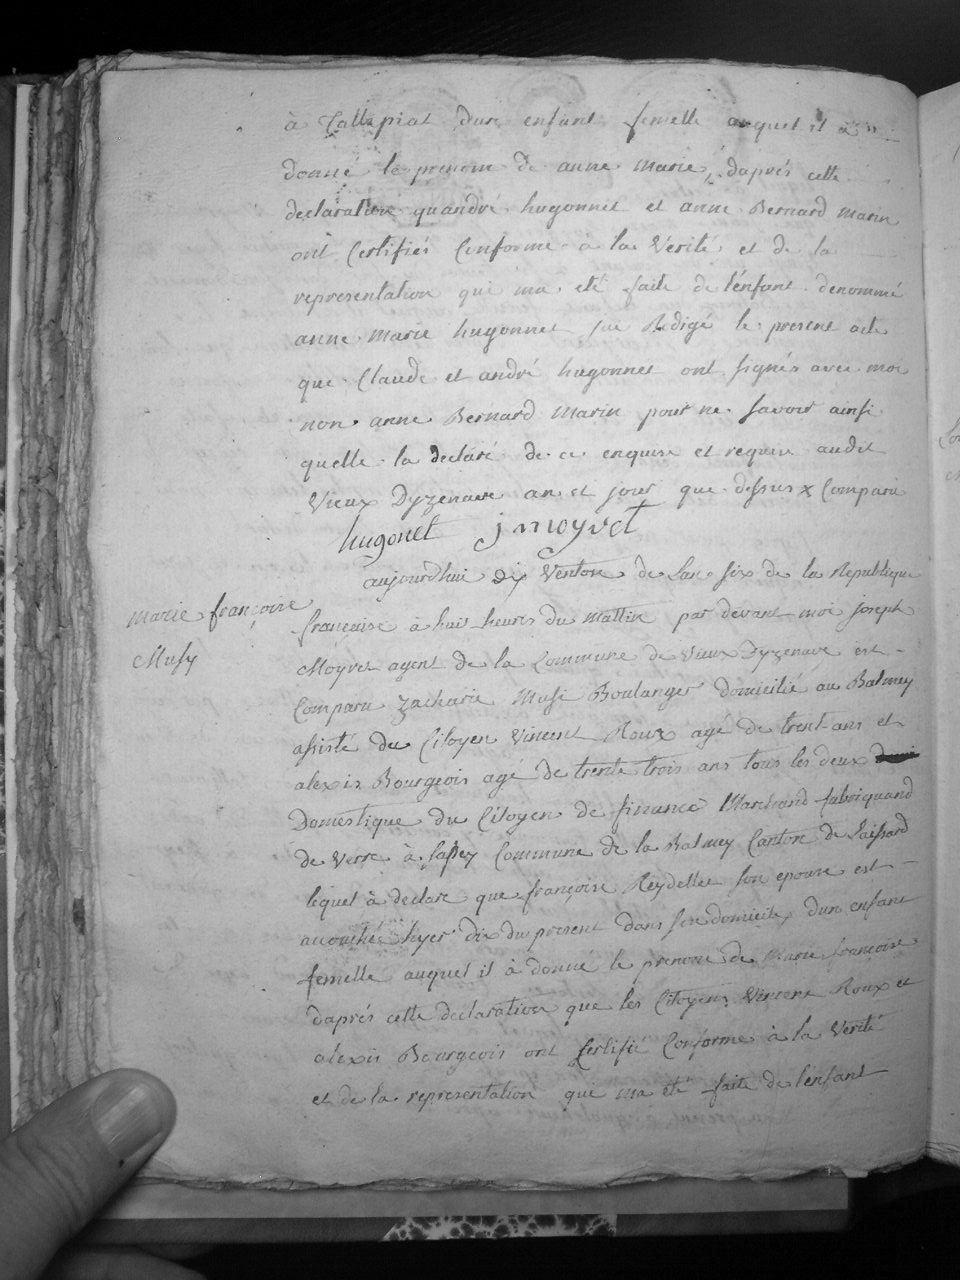 à Tallepiat dure enfant femelle auquel il a
donné le prenom de anne marie, daprés cette
declaration quandré hugonnet et anne Bernard marin
ont Certifiés Conforme a la Verité et de la
representation qui ma eté faite de l'enfant denommé
anne Marie hugonnet jai Redigé le present acte
que Claude et andré hugonnet ont signés avec moi
non anne Bernard Marin pour ne savoir ainsi
quelle la declaré de ce enquise et requise audit
Vieux Dyzenave an et jour que dessus x Comparu
hugonet jmoyret
aujourdhui dix Ventose de Lan six de la Republique
marie françoise
Musy
francaise à huit heures du mattin par devant moi joseph
Moyret agent de la Commune de Vieux Dyzenave est
Comparu zacharie Musi Boulanger domicilié au Balmey
assisté du Citoyen Vincent Roux agé de trent ans et
alexis Bourgeois agé de trente trois ans tous les deux
Domestique du Citoyen de finance Marchand fabriquand
de Verre à Commune de la Balmey Canton de Leissard
lequel à declare que françoise Reydellet son epouse est
acouché hyer dix du present dans son domicile, dun enfant
femelle auquel il à donné le prenom de Marie françoise
daprés cette declaration que les Citoyens Vincent Roux et
alexis Bourgeois ont Certifié Conforme à la Verité
et de la representation qui ma eté faite de l'enfant